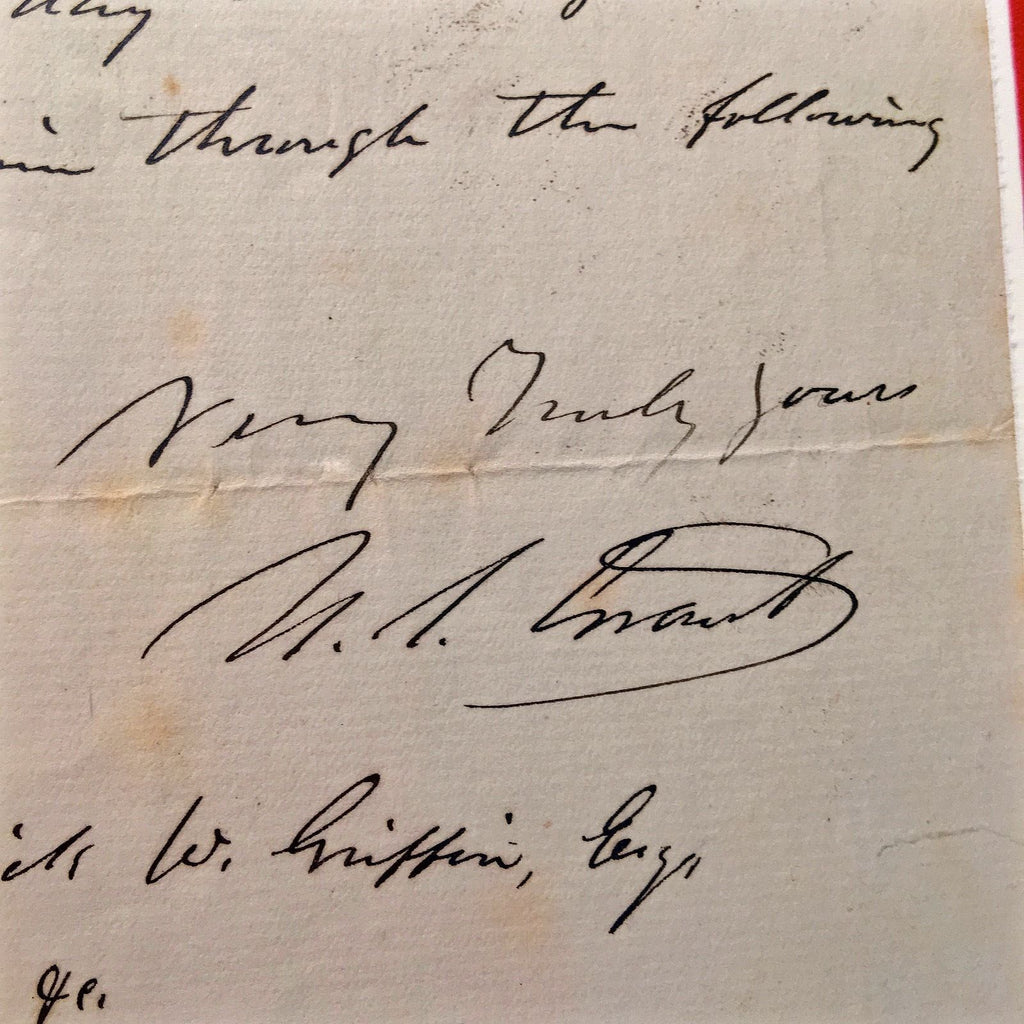 through the following
Very Truly yours
U. S. Grant
W. Griffin, Esq,
&c.